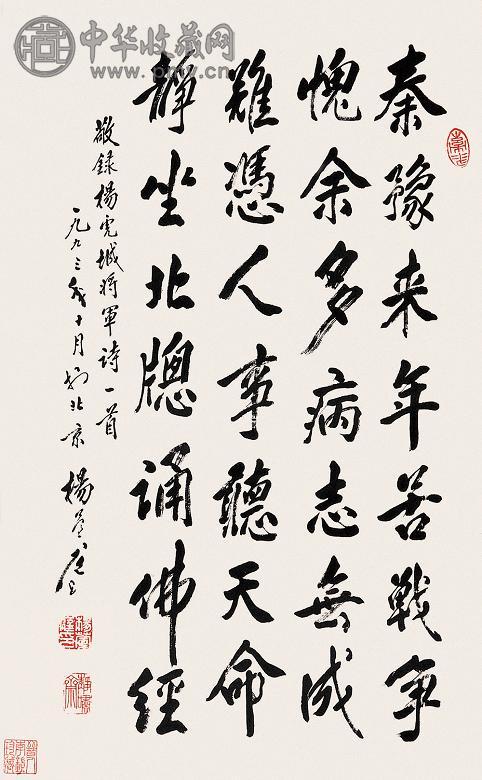 中华收藏网
www.pmv.cn
秦豫来年苦戰争
愧余多病志無成
雖憑人事聽天命
靜坐北牕誦佛經
敬録楊虎城将軍詩一首
一九九三年十月於北京 楊萱庭